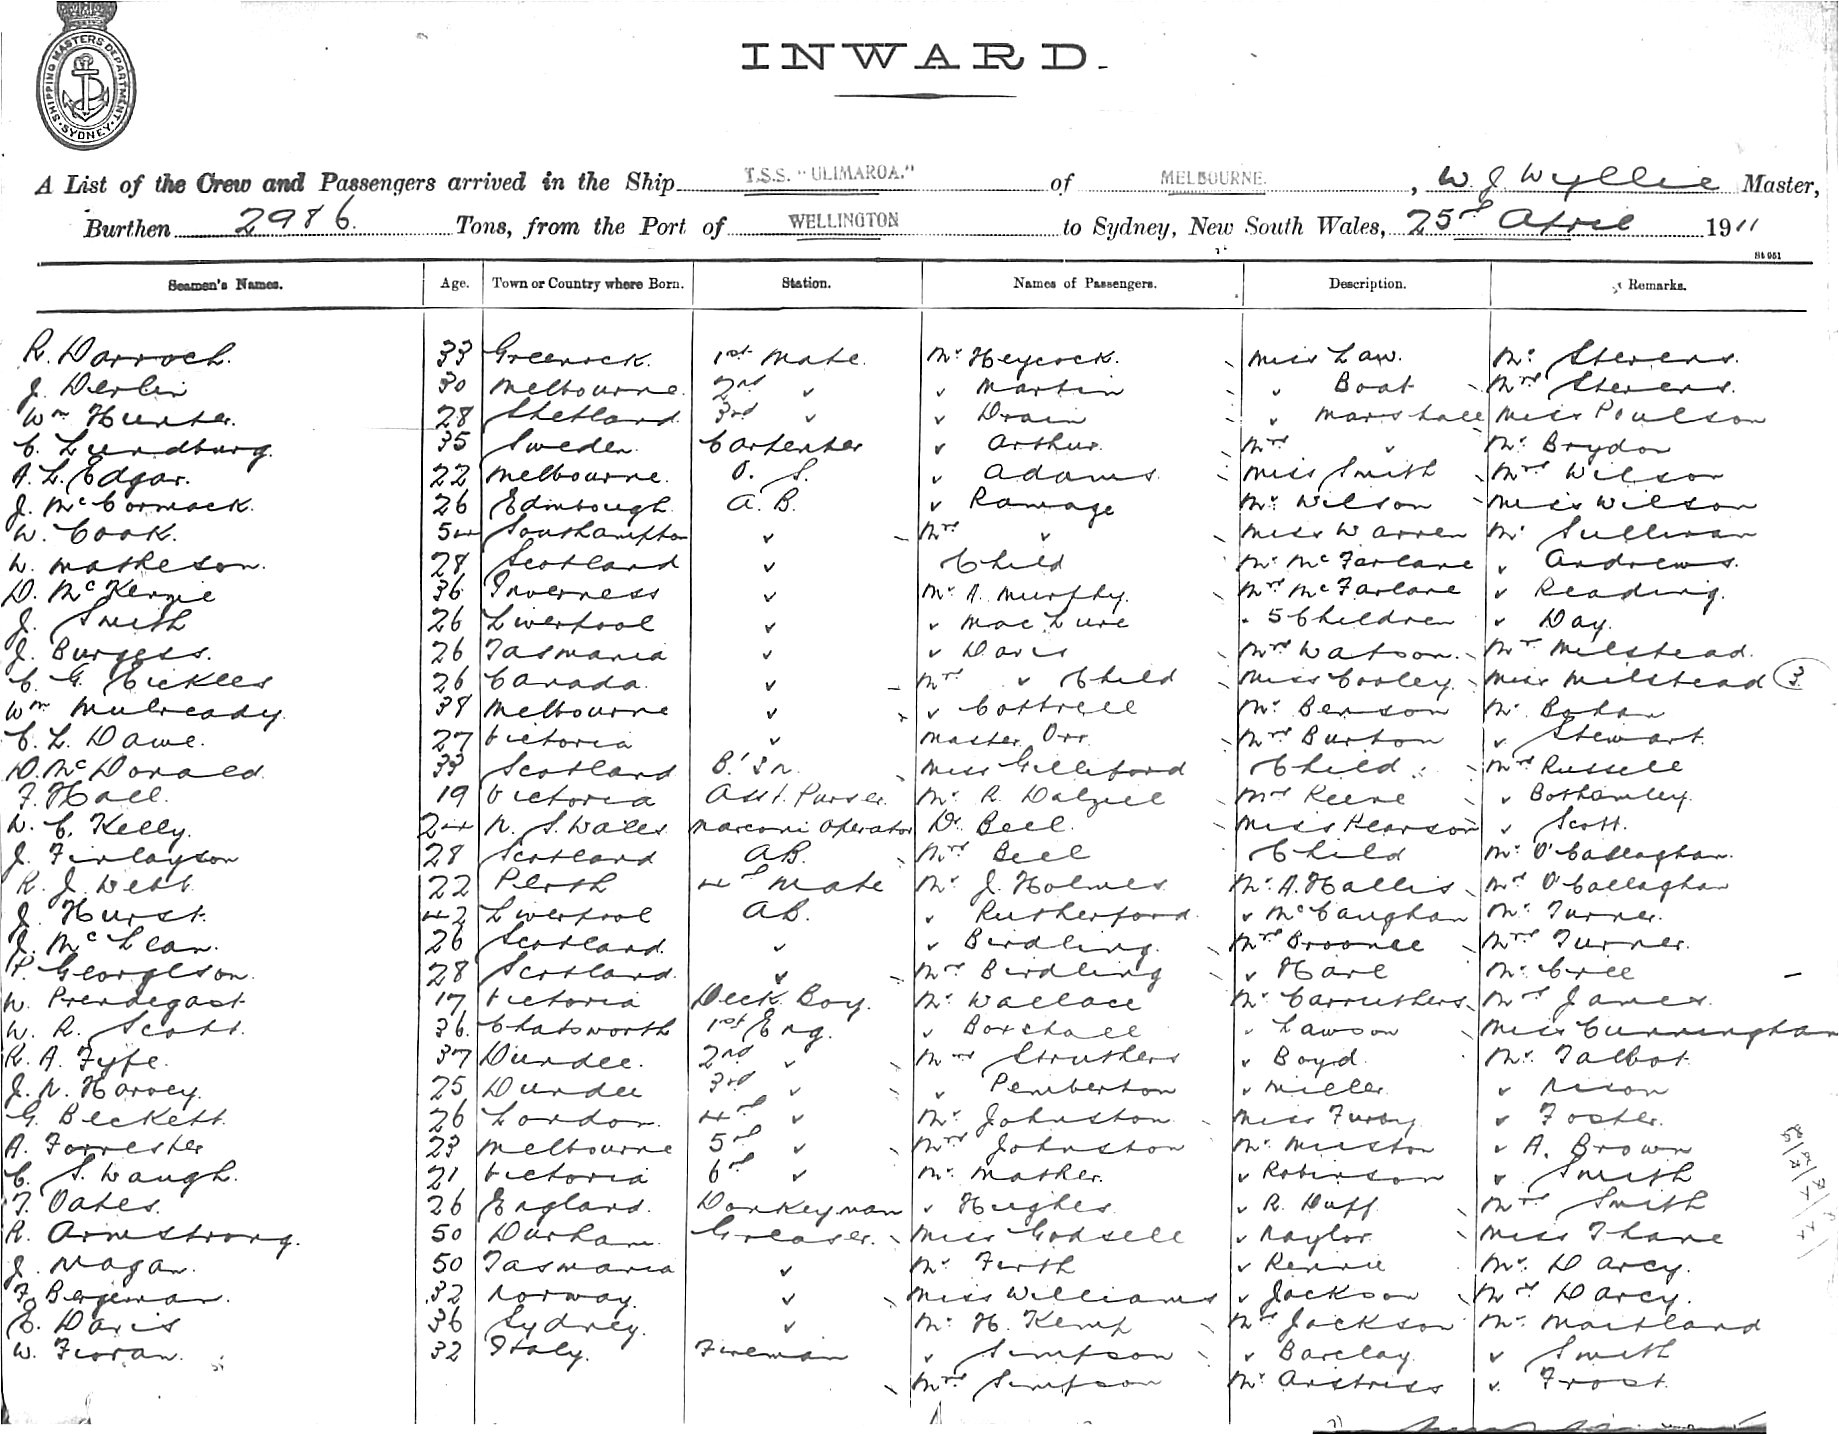 SHIPPING MASTERS DEPARTMENT. SYDNEY
INWARD.
A List of the Crew and Passengers arrived in the Ship T.S.S. "ULIMAROA." of MELBOURNE. , W. J. Wyllie Master,
Burthen 2986. Tons, from the Port of WELLINGTON to Sydney, New South Wales, 25th April 1911
St 051
Seamen's Names. Age. Town or Country where Born. Station. Names of Passengers. Description. Remarks.
R. Darroch. 33 Greenock. 1st Mate. Mr Heycock. Miss Law. Mr Stevens.
J. Devlin 30 Melbourne. 2nd " " Martin " Boat Mrs Stevens.
Wm Hunter. 28 Shetland 3rd " " Drain " Marshall Miss Poulson
C. Lundburg. 35 Sweden. Carpenter " Arthur. Mrs " Mr Brydon
A. L. Edgar. 22 Melbourne. O. S. " Adams. Miss Smith Mrs Wilson
J. McCormack. 26 Edinbough. A.B. " Ramage Mr Wilson Miss Wilson
W. Cook. 54 Southampton " Mrs " Miss Warren Mr Sullivan
W. Matheson. 28 Scotland " Child Mr McFarlane " Andrews.
D. McKenzie 36 Inverness " Mr A. Murphy. Mrs McFarlane " Reading.
J. Smith 26 Liverpool " " MacLure " 5 Children " Day.
J. Burgess. 26 Tasmania " " Davis Mrs Watson. Mrs Milstead.
C. G. Eickles 26 Canada. " Mrs " Child Miss Cooley. Miss Milstead 3
Wm Mulready. 38 Melbourne " " Cottrell Mr Benson Mr Bohan
C. L. Dawe. 27 Victoria " Master Orr. Mrs Burton " Stewart.
D. McDonald. 33 Scotland B'sn. Miss Gilliford Child. Mrs Russell
F. Hall. 19 Victoria Asst. Purser. Mr R. Dalziel Mrs Keene " Bothamley.
W. C. Kelly. 24 N. S. Wales Marconi Operator Dr Bell. Miss Pearson " Scott.
J. Finlayson 28 Scotland AB. Mrs Bell Child Mr O'Callaghan.
R. J. Webb. 22 Perth 4th Mate Mr J. Holmes. Mr A. Hallis Mrs O'Callaghan
J. Hurst. 42 Liverpool AB. " Rutherford. " McCaughan Mr Turner.
J. McLean. 26 Scotland. " " Birdling. Mrs Broonee Mrs Turner.
P. Georgeson. 28 Scotland. " Mrs Birdling " Hare Mr Cree
W. Prendegast. 17 Victoria Deck Boy. Mr Wallace Mr Carruthers. Mrs James.
W. R. Scott. 36 Chatsworth 1st Eng. " Boxhall " Lawson Miss Cunningham
R. A. Fyfe. 37 Dundee. 2nd " Mrs Struthers " Boyd. Mr Talbot.
J. N. Harvey. 25 Dundee 3rd " " Pemberton " Miller. " Nixon
G. Beckett. 26 London. 4th " Mr Johnston. Miss Furby. " Foster.
A. Forrester 23 Melbourne 5th " Mrs Johnston Mr Muston " A. Brown
C. S. Waugh. 21 Victoria 6th " Mr Mather. " Robinson " Smith
T. Oates. 26 England. Donkeyman " Hughes. " R. Duff Mrs Smith
R. Armstrong. 50 Durham. Greaser. Miss Godsell " Naylor. Miss Thane
J. Magan. 50 Tasmania " Mr Firth " Rennie Mr Darcy.
F. Bergeman. 32 Norway. " Miss Williams " Jackson Mrs Darcy.
C. Davis 36 Sydney. " Mr H. Kemp Mrs Jackson Mr Maitland
W. Fioran. 32 Italy. Fireman " Simpson " Barclay. " Smith
Mrs Simpson Mr Anstriss " Frost.